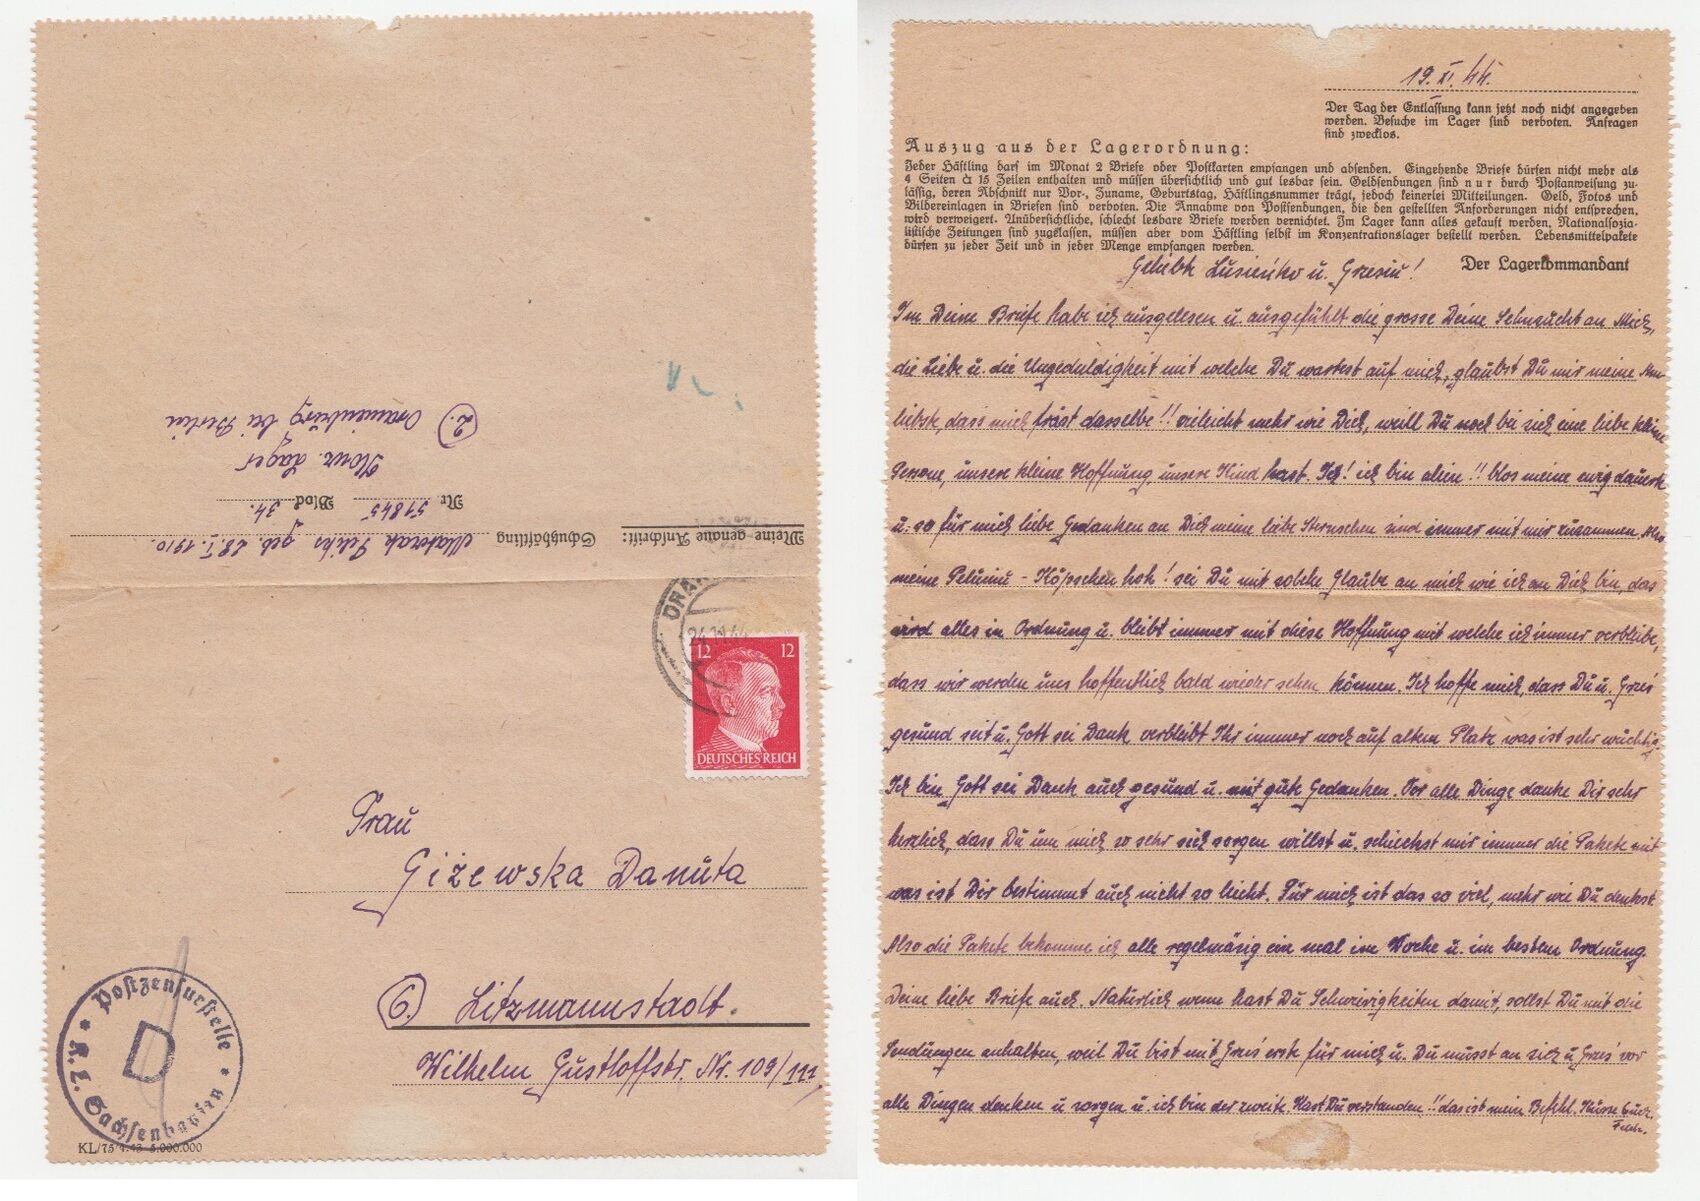 Meine genaue Anschrift:
Schutzhäftling
Materak Feliks geb. 28.I.1910.
Nr. 51845 Block 34.
Konz. Lager
2. Oranienburg bei Berlin
24.11.44
12 12
DEUTSCHES REICH
Frau
Giżewska Danuta
6. Litzmannstadt.
Wilhelm Gustloffstr. Nr. 109/111
* Postzensurstelle *
D
K.L. Sachsenhausen
KL/75 4.43 5.000.000
19.XI.44.
Der Tag der Entlassung kann jetzt noch nicht angegeben
werden. Besuche im Lager sind verboten. Anfragen
sind zwecklos.
Auszug aus der Lagerordnung:
Jeder Häftling darf im Monat 2 Briefe oder Postkarten empfangen und absenden. Eingehende Briefe dürfen nicht mehr als
4 Seiten à 15 Zeilen enthalten und müssen übersichtlich und gut lesbar sein. Geldsendungen sind nur durch Postanweisung zu-
lässig, deren Abschnitt nur Vor-, Zuname, Geburtstag, Häftlingsnummer trägt, jedoch keinerlei Mitteilungen. Geld, Fotos und
Bildereinlagen in Briefen sind verboten. Die Annahme von Postsendungen, die den gestellten Anforderungen nicht entsprechen,
wird verweigert. Unübersichtliche, schlecht lesbare Briefe werden vernichtet. Im Lager kann alles gekauft werden. Nationalsozia-
listische Zeitungen sind zugelassen, müssen aber vom Häftling selbst im Konzentrationslager bestellt werden. Lebensmittelpakete
dürfen zu jeder Zeit und in jeder Menge empfangen werden.
Der Lagerkommandant
Geliebte Lusieńko u. Grzesiu!
Im Deine Briefe habe ich ausgelesen u. ausgefühlt die grosse Deine Sehnsucht an Mich,
die Liebe u. die Ungeduldigkeit mit welche Du wartest auf mich, glaubst Du mir meine
liebste, dass mich dasselbe!! vieleicht mehr wie Dich, weill Du noch bei sich eine liebe kleine
Persone, unsere kleine Hoffnung unsere Kind hast. Ich! ich bin alein!! blos meine ewig dauerte
u. so für mich liebe Gedanken an Dich meine liebe Sternschen sind immer mit mir zusammen. Also
meine - Köpschen hoh! sei Du mit solche Glaube an mich wie ich an Dich bin, das
wird alles in Ordnung u. bleibt immer mit diese Hoffnung mit welche ich immer verbleibe,
dass wir werden uns hoffentlich bald wieder sehen können. Ich hoffe mich, dass Du u. Grześ
gesund seit u. Gott sei Dank verbleibt Ihr immer noch auf alten Platz was ist sehr wichtig.
Ich bin Gott sei Dank auch gesund u. mit gute Gedanken. Vor alle Dinge danke Dir sehr
herzlich, dass Du um mich so sehr sich sorgen willst u. schiechst mir immer die Pakete mit
was ist Dir bestimmt auch nicht so leicht. Für mich ist das so viel, mehr wie Du denkst
Also die Pakete bekomme ich alle regelmäsig ein mal im Woche u. im besten Ordnung.
Deine liebe Briefe auch. Natürlich wenn hast Du Schwirigkeiten damit, sollst Du mit die
Sendungen anhalten, weil Du bist mit Grześ erste für mich u. Du musst an sich u. Grześ vor
alle Dingen denken u sorgen u. ich bin der zweite. Hast Du verstanden!! das ist mein Befehl. Küsse Euch.
Feliks.